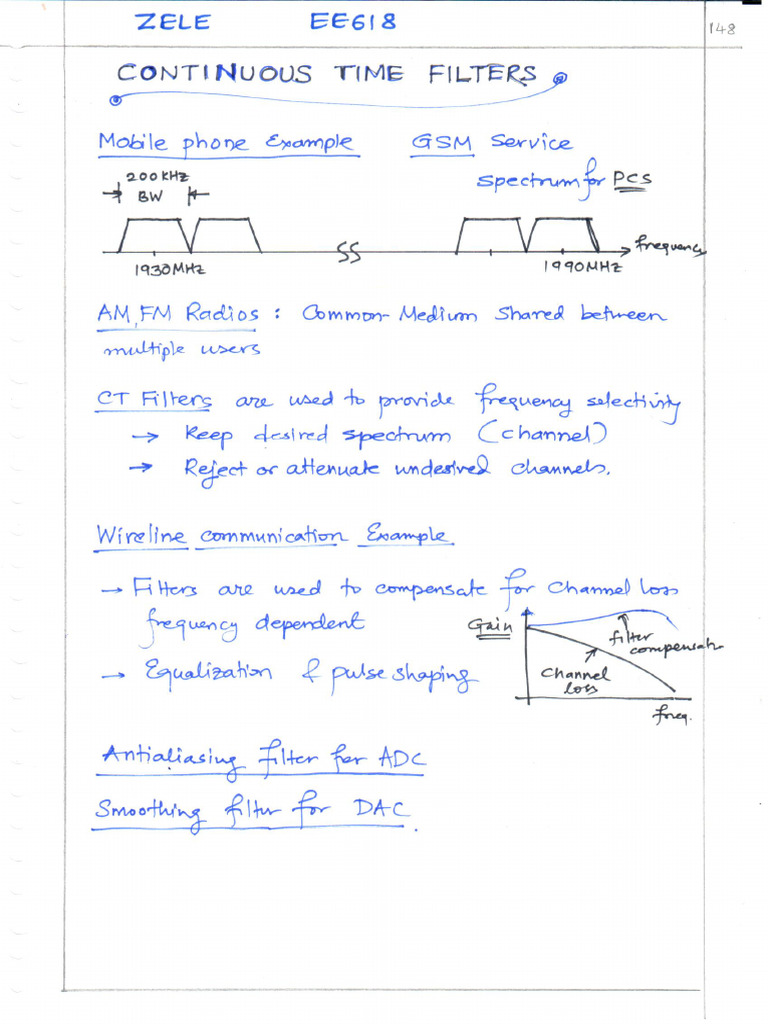 ZELE EE618
148
CONTINUOUS TIME FILTERS
Mobile phone Example GSM Service
Spectrum for PCS
200KHZ
BW
frequency
1930MHZ 1990MHZ
AM, FM Radios : Common-Medium shared between
multiple users
CT Filters are used to provide frequency selectivity
→ Keep desired spectrum (channel)
→ Reject or attenuate undesired channels.
Wireline communication Example
→ Filters are used to compensate for channel loss
frequency dependent
Gain
filter
compensate
→ Equalization & pulse shaping
Channel
loss
freq.
Antialiasing filter for ADC
Smoothing filter for DAC.